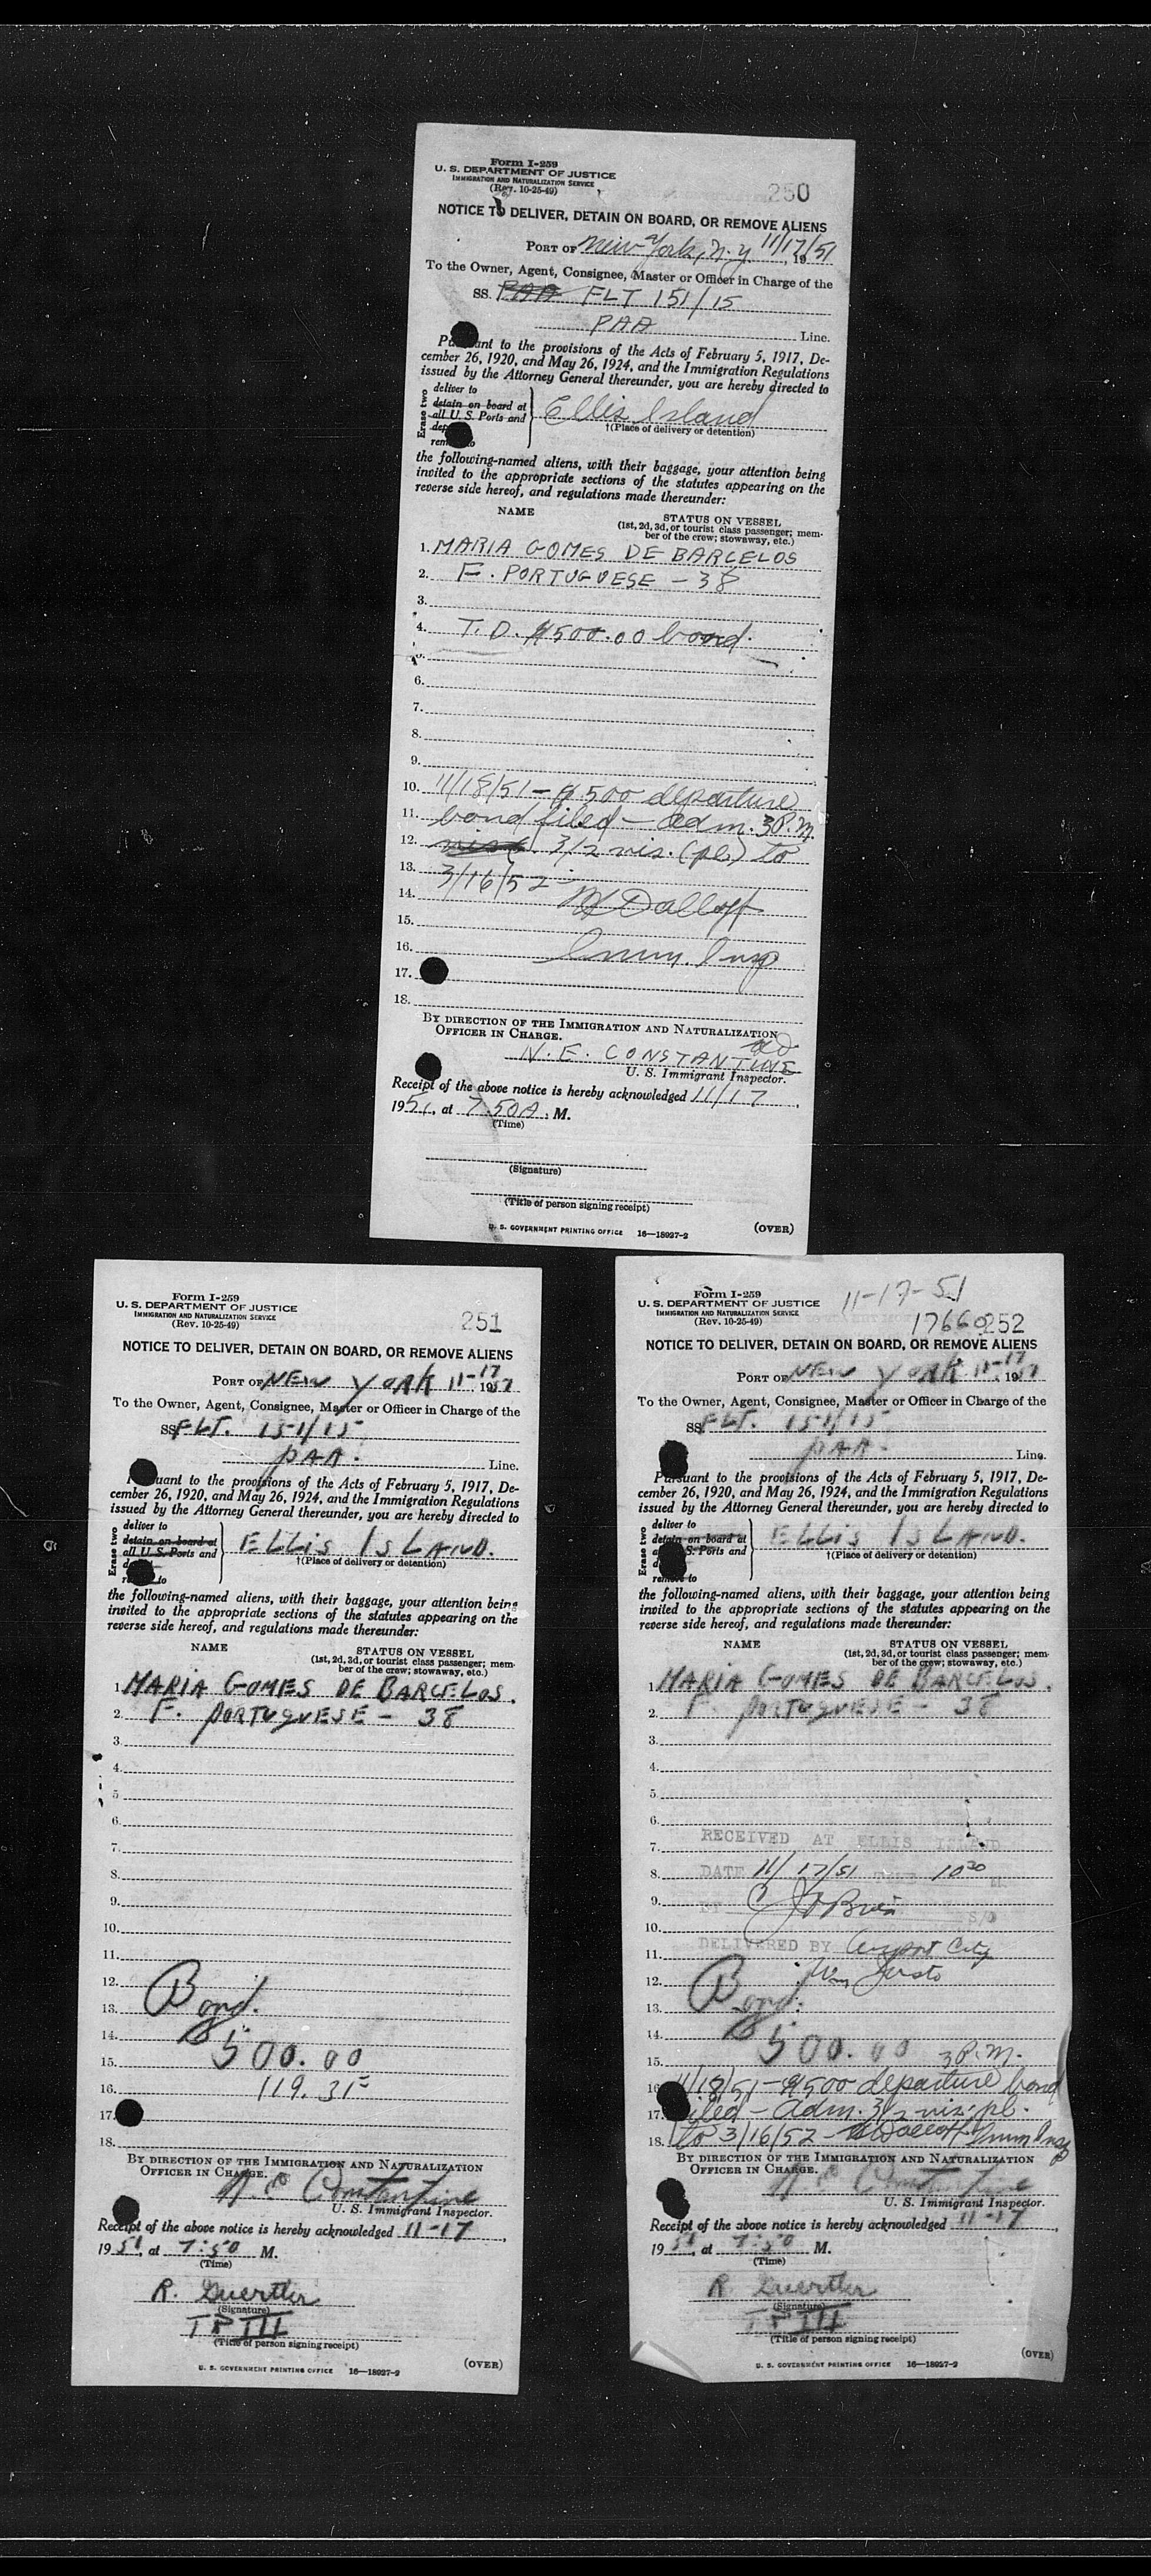 Form I-259
U. S. DEPARTMENT OF JUSTICE
IMMIGRATION AND NATURALIZATION SERVICE
(Rev. 10-25-49)
250
NOTICE TO DELIVER, DETAIN ON BOARD, OR REMOVE ALIENS
PORT OF New York, N.Y. 11/17/51, 19
To the Owner, Agent, Consignee, Master or Officer in Charge of the
SS. PAA FLT 151/15
PAA Line.
Pursuant to the provisions of the Acts of February 5, 1917, De-
cember 26, 1920, and May 26, 1924, and the Immigration Regulations
issued by the Attorney General thereunder, you are hereby directed to
Erase two
deliver to
detain on board at
all U. S. Ports and
remove to
Ellis Island
†(Place of delivery or detention)
the following-named aliens, with their baggage, your attention being
invited to the appropriate sections of the statutes appearing on the
reverse side hereof, and regulations made thereunder:
NAME STATUS ON VESSEL
(1st, 2d, 3d, or tourist class passenger; mem-
ber of the crew; stowaway, etc.)
1. MARIA GOMES DE BARCELOS
2. F. PORTUGUESE - 38
3.
4. T.D. $500.00 bond.
5.
6.
7.
8.
9.
10. 11/18/51 - $500 departure
11. bond filed - adm. 3 P.M.
12. 3/2 vis. (pl.) to
13. 3/16/52
14.
15.
16. Imm. Insp
17.
18.
BY DIRECTION OF THE IMMIGRATION AND NATURALIZATION
OFFICER IN CHARGE.
N. E. CONSTANTINE
U. S. Immigrant Inspector.
Receipt of the above notice is hereby acknowledged 11/17,
1951, at 7.50A. M.
(Time)
(Signature)
(Title of person signing receipt)
U. S. GOVERNMENT PRINTING OFFICE 16—18927-2 (OVER)
Form I-259
U. S. DEPARTMENT OF JUSTICE
IMMIGRATION AND NATURALIZATION SERVICE
(Rev. 10-25-49)
251
NOTICE TO DELIVER, DETAIN ON BOARD, OR REMOVE ALIENS
PORT OF NEW YORK 11-17, 1951
To the Owner, Agent, Consignee, Master or Officer in Charge of the
SS FLT. 151/15
PAA. Line.
Pursuant to the provisions of the Acts of February 5, 1917, De-
cember 26, 1920, and May 26, 1924, and the Immigration Regulations
issued by the Attorney General thereunder, you are hereby directed to
Erase two
deliver to
detain on board at
all U. S. Ports and
remove to
ELLIS ISLAND.
†(Place of delivery or detention)
the following-named aliens, with their baggage, your attention being
invited to the appropriate sections of the statutes appearing on the
reverse side hereof, and regulations made thereunder:
NAME STATUS ON VESSEL
(1st, 2d, 3d, or tourist class passenger; mem-
ber of the crew; stowaway, etc.)
1. MARIA GOMES DE BARCELOS.
2. F. PORTUGUESE - 38
3.
4.
5.
6.
7.
8.
9.
10.
11.
12.
13. Bond.
14.
15. 500.00
16. 119.35
17.
18.
BY DIRECTION OF THE IMMIGRATION AND NATURALIZATION
OFFICER IN CHARGE.
N. E. Constantine
U. S. Immigrant Inspector.
Receipt of the above notice is hereby acknowledged 11-17,
1951, at 7:50 M.
(Time)
R. Duertler
(Signature)
TP III
(Title of person signing receipt)
U. S. GOVERNMENT PRINTING OFFICE 16—18927-2 (OVER)
11-17-51
Form I-259
U. S. DEPARTMENT OF JUSTICE
IMMIGRATION AND NATURALIZATION SERVICE
(Rev. 10-25-49)
17660 252
NOTICE TO DELIVER, DETAIN ON BOARD, OR REMOVE ALIENS
PORT OF NEW YORK 11-17, 1951
To the Owner, Agent, Consignee, Master or Officer in Charge of the
SS FLT. 151/15
PAA. Line.
Pursuant to the provisions of the Acts of February 5, 1917, De-
cember 26, 1920, and May 26, 1924, and the Immigration Regulations
issued by the Attorney General thereunder, you are hereby directed to
Erase two
deliver to
detain on board at
all U. S. Ports and
remove to
ELLIS ISLAND.
†(Place of delivery or detention)
the following-named aliens, with their baggage, your attention being
invited to the appropriate sections of the statutes appearing on the
reverse side hereof, and regulations made thereunder:
NAME STATUS ON VESSEL
(1st, 2d, 3d, or tourist class passenger; mem-
ber of the crew; stowaway, etc.)
1. MARIA GOMES DE BARCELOS.
2. F PORTUGUESE - 38
3.
4.
5.
6.
7. RECEIVED AT ELLIS ISLAND
8. DATE 11/17/51 10 30
9. BY C J O'Brien
10. S/O
11. DELIVERED BY Airport City
12. Wm Justo
13. Bond.
14.
15. 500.00 3 P.M.
16. 11/18/51 - $500 departure bond
17. filed - Adm. 3/2 vis. pl.
18. to 3/16/52 - Imm Insp
BY DIRECTION OF THE IMMIGRATION AND NATURALIZATION
OFFICER IN CHARGE.
N. E. Constantine
U. S. Immigrant Inspector.
Receipt of the above notice is hereby acknowledged 11-17,
1951, at 7:50 M.
(Time)
R. Duertler
(Signature)
TP III
(Title of person signing receipt)
U. S. GOVERNMENT PRINTING OFFICE 16—18927-2 (OVER)